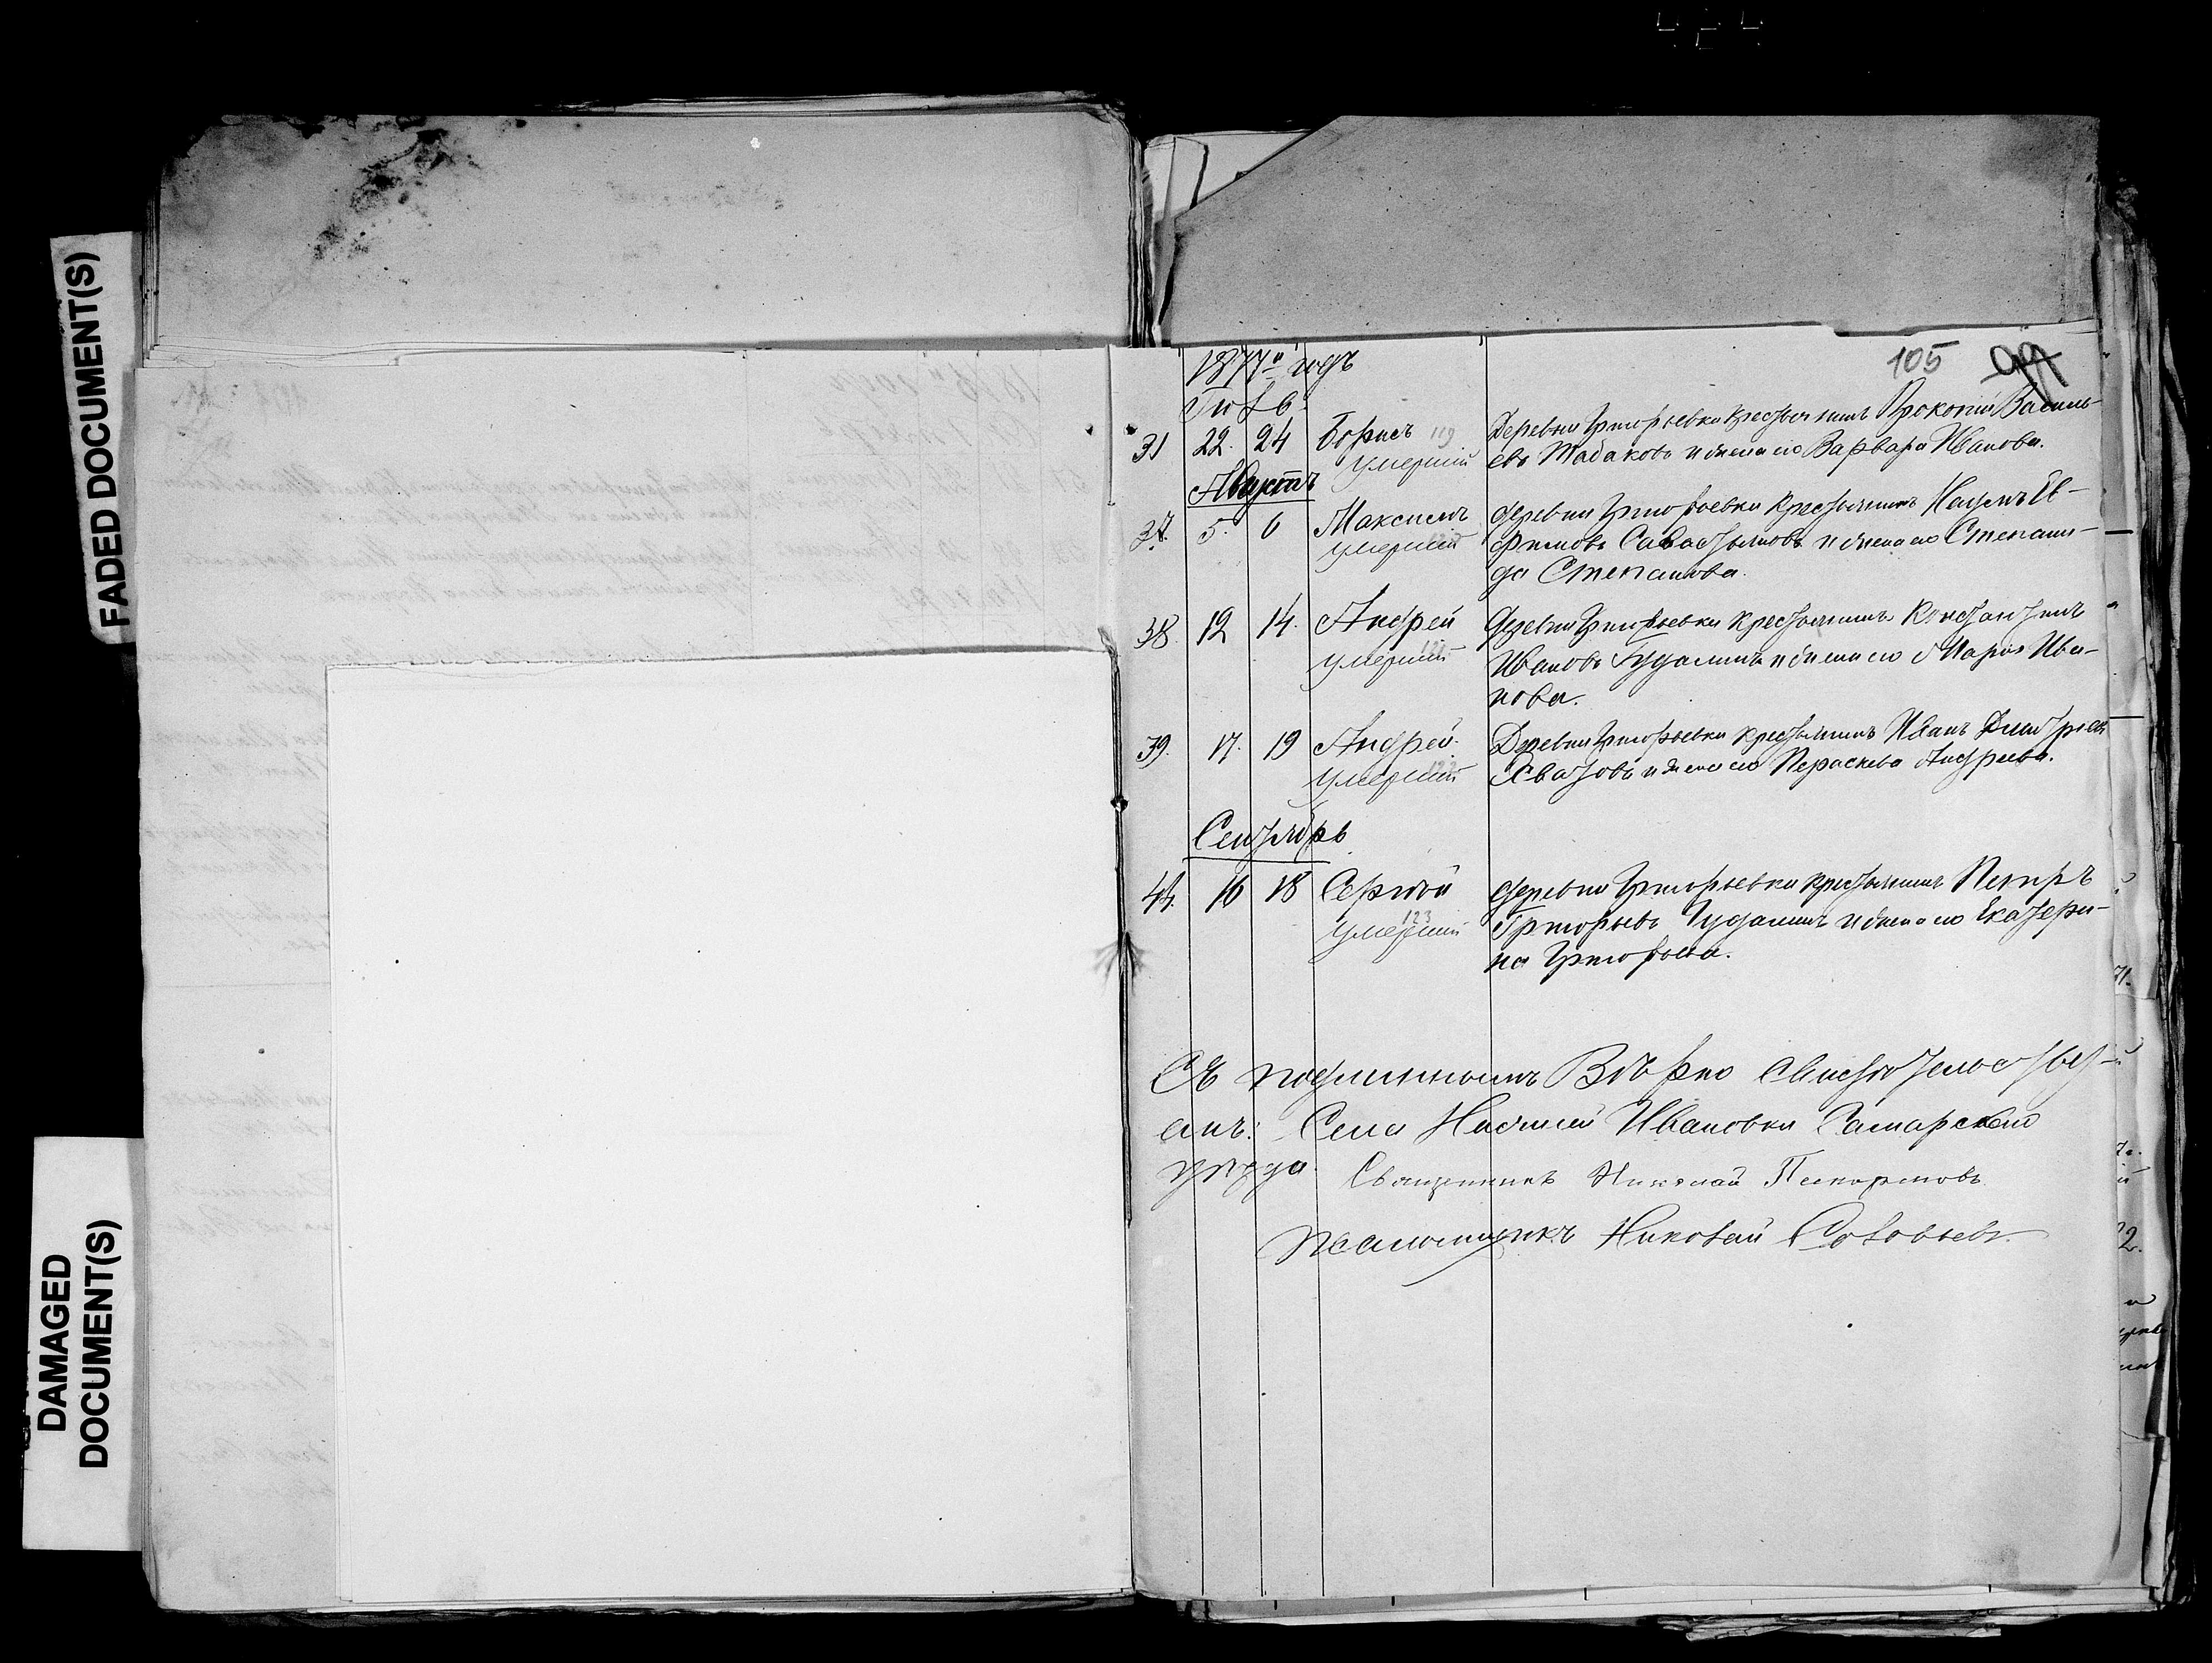 FADED DOCUMENT(S)
DAMAGED
DOCUMENT(S)
105 99
1877й годъ
Іюль
31 22. 24 Борисъ 119 Деревни Григорьевки крестьянинъ Прокопій Василь-
умерший евъ Табаковъ и жена его Варвара Иванова.
Августъ
37. 5. 6 Максимъ деревни Григорьевки крестьянинъ Наумъ Ев-
умерший фимовъ Савастьяновъ и жена его Степани-
да Степанова.
38. 12 14. Андрей деревни Григорьевки крестьянинъ Константинъ
умерший Ивановъ Гудалинъ и жена его Марія Ива-
нова.
39. 17. 19 Андрей Деревни Григорьевки крестьянинъ Иванъ Дмитріевъ
умерший Хватовъ и жена его Параскева Андреева.
Сентябрь
44. 16 18 Сергѣй деревни Григорьевки крестьянинъ Петръ
123 умерший Григорьевъ Гудалинъ и жена его Екатери-
на Григорьева.
Съ подлиннымъ Вѣрно свидѣтельствуемъ:
Села Ивановки Самарскаго
уѣзда. Священникъ Николай
Псаломщикъ Николай Соловьевъ